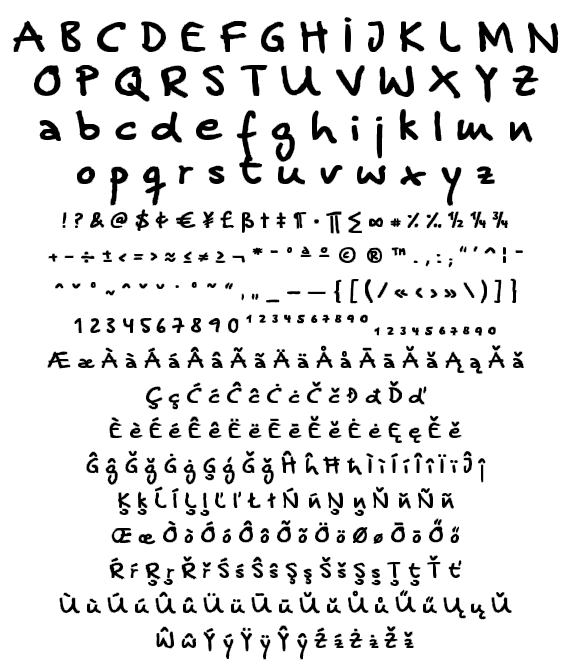 A B C D E F G H I J K L M N
O P Q R S T U V W X Y Z
a b c d e f g h i j k l m n
o p q r s t u v w x y z
! ? & @ $ ¢ € ¥ £ β † ‡ ¶ · ∏ ∑ ∞ # ٪ ⁒ ½ ¼ ¾
+ − ÷ ± < = > ≈ ≤ ≠ ≥ ¬ * - ° ª º © ® ™ . , : ; " ' ^ ¦ ¯
ˆ ˇ ° ~ ˆ ˘ ˇ · ° ~ “ , „ _ – — { [ ( / « ‹ › » \ ) ] }
1 2 3 4 5 6 7 8 9 0 ¹ ² ³ ⁴ ⁵ ⁶ ⁷ ⁸ ⁹ ⁰ ₁ ₂ ₃ ₄ ₅ ₆ ₇ ₈ ₉ ₀
Æ æ À à Á á Â â Ã ã Ä ä Å å Ā ā Ă ă Ą ą Ǎ ǎ
Ç ç Ć ć Ĉ ĉ Ċ ċ Č č Đ đ Ď ď
È è É é Ê ê Ë ë Ē ē Ĕ ĕ Ė ė Ę ę Ě ě
Ĝ ĝ Ğ ğ Ġ ġ Ģ ģ Ǧ ǧ Ĥ ĥ Ħ ħ Ì ì Í í Î î Ï ï Ĵ ĵ
Ķ ķ Ĺ ĺ Ļ ļ Ľ ľ Ł ł Ń ń Ņ ņ Ň ň Ñ ñ
Œ œ Ò ò Ó ó Ô ô Õ õ Ö ö Ø ø Ō ō Ő ő
Ŕ ŕ Ŗ ŗ Ř ř Ś ś Ŝ ŝ Ş ş Š š Ș ș Ţ ţ Ť ť
Ù ù Ú ú Û û Ü ü Ū ū Ŭ ŭ Ů ů Ű ű Ų ų Ǔ
Ŵ ŵ Ý ý Ÿ ÿ Ŷ ŷ Ź ź Ż ż Ž ž